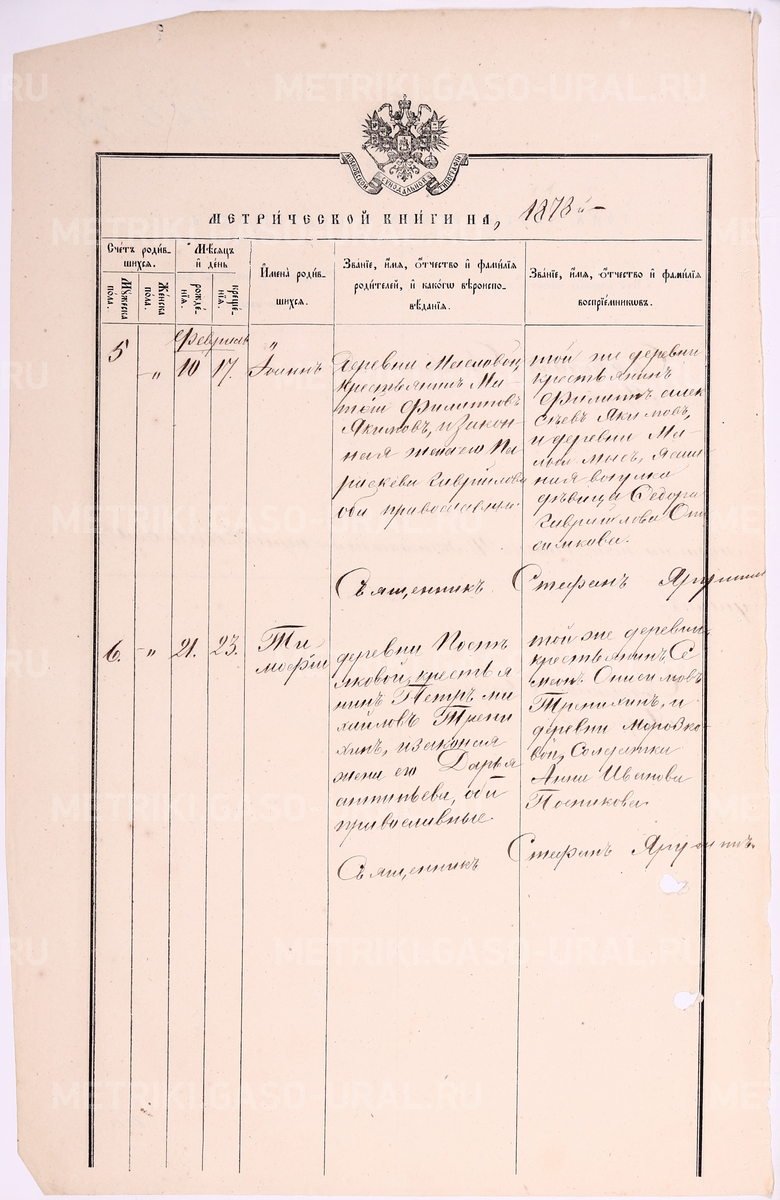 METRIKI.GASO-URAL.RU
МОСКОВСКОЙ СѴНОДАЛЬНОЙ ТИПОГРАФІИ
МЕТРИ́ЧЕСКОЙ КНИ́ГИ НА, 1873й
Сче́тъ роди́в-
шихся.
Мѣ́сяцъ
и҆ де́нь
Мꙋ́жеска по́ла.
Же́нска по́ла.
рожде́-
нїя.
креще́-
нїя.
И҆мена̀ роди́в-
шихся.
Зва́нїе, и҆́мя, ѻ҆́тчество и҆ фами́лїя
роди́телей, и҆ како́гѡ вѣроиспо-
вѣ́данїя.
Зва́нїе, и҆́мя, ѻ҆́тчество и҆ фами́лїя
воспрїе́мникѡвъ.
Февраль
5 " 10 17. Іоаннъ
деревни Мысловой,
крестьянинъ
Филиповъ
Якимовъ, и закон
ная жена его Па
раскева Гаврилова
оба православные
той же деревни
крестьянинъ
Филиппъ Алек
сѣевъ Якимовъ,
и деревни Ма
лой мысъ, ясаш
ная вогулка
дѣвица Ѳедора
Гаврилова
Священникъ Стефанъ
6. " 21. 23. Ти
моѳей
деревни Пост
никовой, крестья
нинъ Петръ ми
хайловъ Трени
хинъ, и законая
жена его Дарья
антипьева, оба
православные
той же деревни
крестьянинъ Се
менъ Онисимовъ
Тренихинъ, и
деревни Морозко
вой, Солдатка
Анна Иванова
Посникова
Священникъ Стефанъ